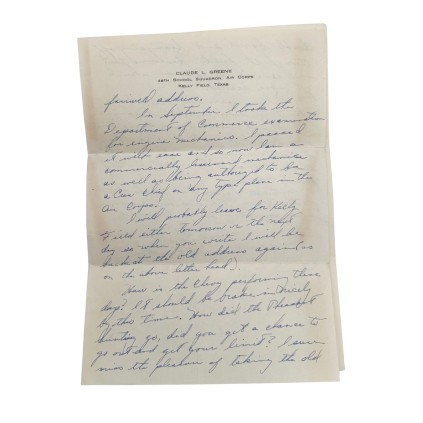 CLAUDE L. GREENE
48TH SCHOOL SQUADRON, AIR CORPS
KELLY FIELD, TEXAS
farewell address.
In September I took the
Department of Commerce examination
for engine mechanics. I passed
it with ease and so now I am a
commercially licensed mechanic
as well as being authorized to be
a Crew Chief on any type plane in the
Air Corps.
I will probably leave for Kelly
Field either tomorrow or the next
day so when you write I will be
back at the old address again (as
on the above letter head).
How is the Chevy performing these
days? It should be broke in nicely
by this time. How did the Pheasant
hunting go, did you get a chance to
go out and get your limit? I sure
miss the pleasure of taking the old